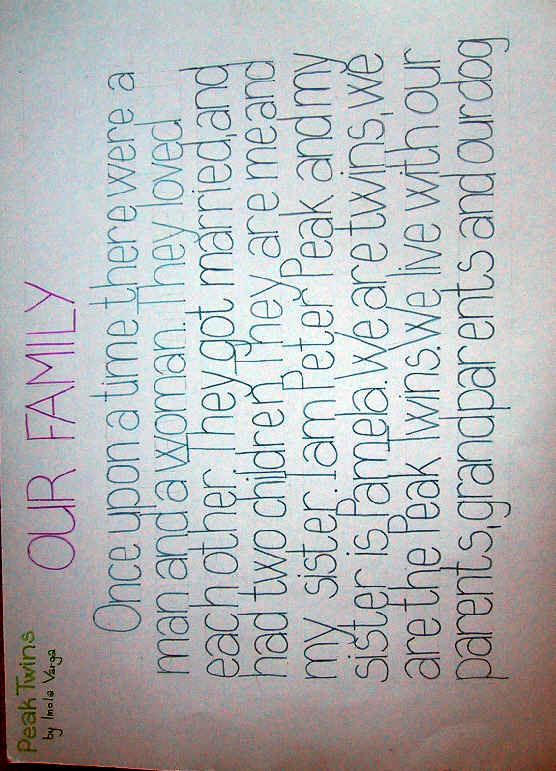 Peak Twins
by Imola Varga
OUR FAMILY
Once upon a time there were a
man and a woman. They loved
each other. They got married, and
had two children. They are me and
my sister. I am Peter Peak and my
sister is Pamela. We are twins, we
are the Peak Twins. We live with our
parents, grandparents and our dog